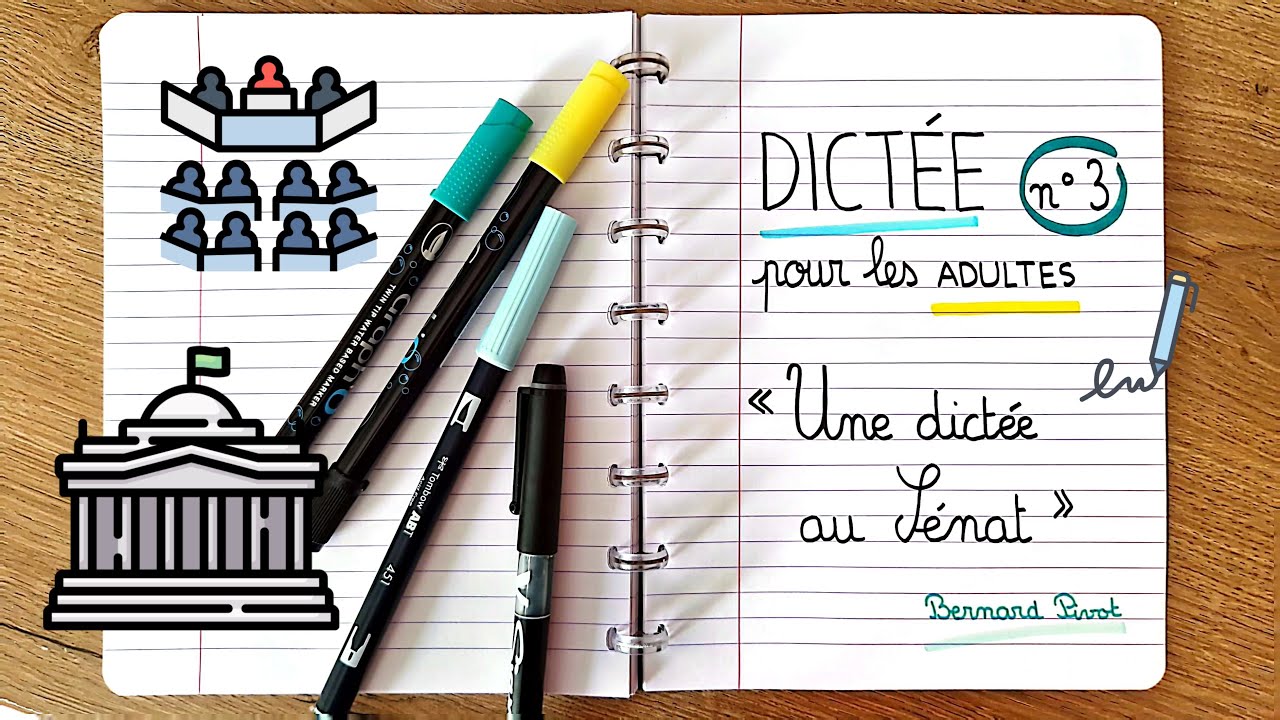 DICTÉE n° 3
pour les ADULTES
« Une dictée
au Sénat »
Bernard Pivot
TWIN TIP WATER BASED MARKER
Tombow ABT
451